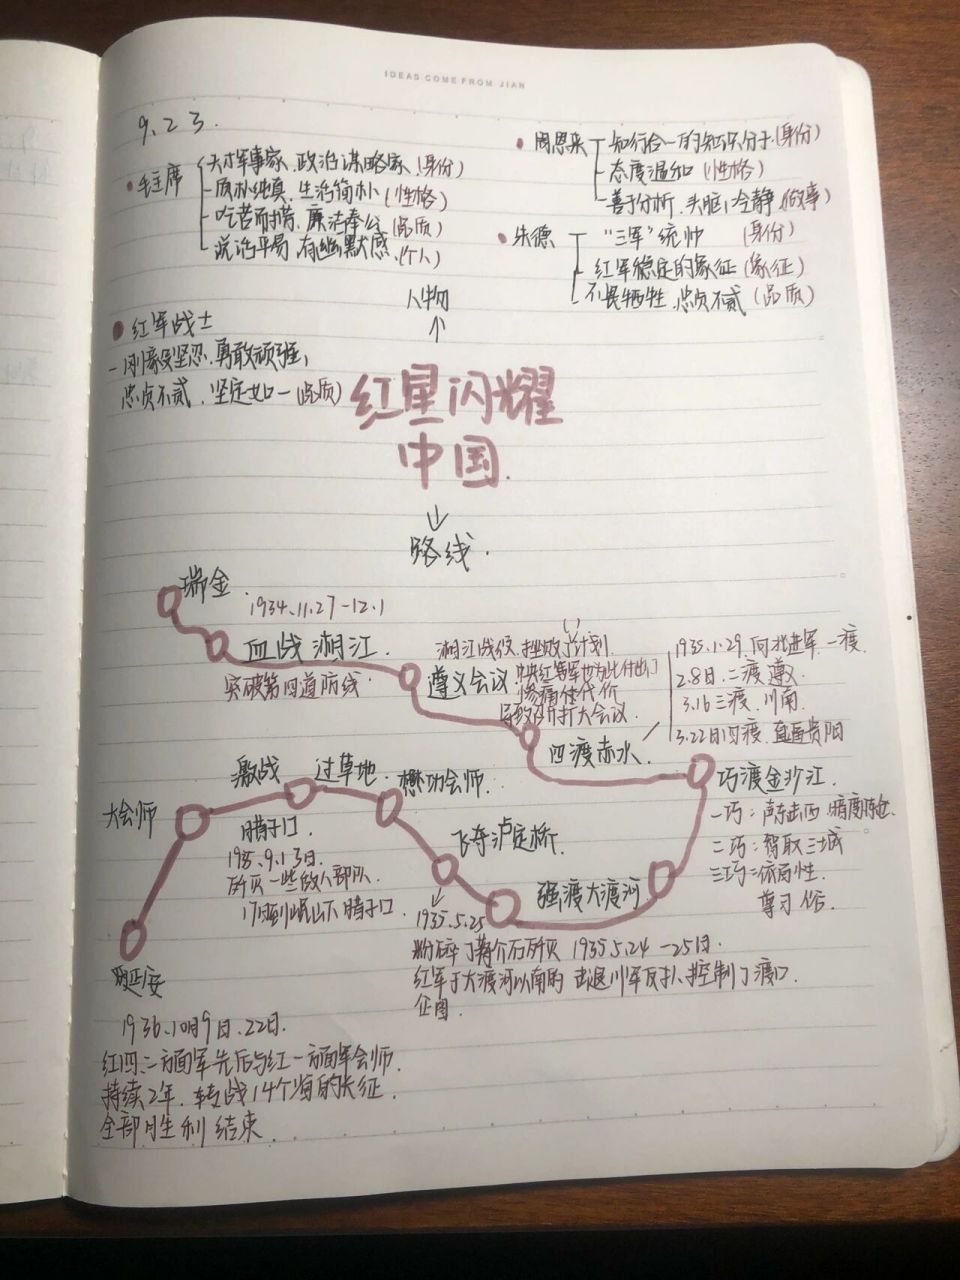 IDEAS COME FROM JIAN
9.23.
毛主席
大才军事家、政治谋略家.(身份)
质朴纯真、生活简朴(性格)
吃苦而耐劳、廉洁奉公(品质)
说话平易、有幽默感.(个人)
周恩来
知行合一的知识分子.(身份)
态度温和 (性格)
善于分析、头脑冷静.(做事)
朱德
"三军"统帅 (身份)
红军稳定的象征(象征)
不畏牺牲、忠贞不贰 (品质)
人物
红军战士
刚毅坚忍、勇敢顽强、
忠贞不贰、坚定如一(品质)
红星闪耀
中国.
路线.
瑞金.
1934.11.27-12.1
血战湘江.
突破第四道防线
遵义会议
湘江战役,挫败了计划
惨痛住代价
四渡赤水.
1935.1.29.向北进军 一渡.
2.8日.二渡 遵义
3.16三渡.川南.
3.22日四渡.直逼贵阳
巧渡金沙江.
一巧:声东击西 暗度陈仓.
二巧:智取三城
三巧:
尊习俗.
强渡大渡河
1935.5.24-25日.
击退川军反扑,控制了渡口.
飞夺泸定桥.
1935.5.25
粉碎了蒋介石所
红军于大渡河以南的
企图.
懋功会师.
过草地.
激战
腊子口.
1935.9.13日.
岷山下腊子口.
大会师
延安
1936.10月9日、22日.
红四、二方面军先后与红一方面军会师.
持续2年.转战14个省的长征.
全部胜利结束.